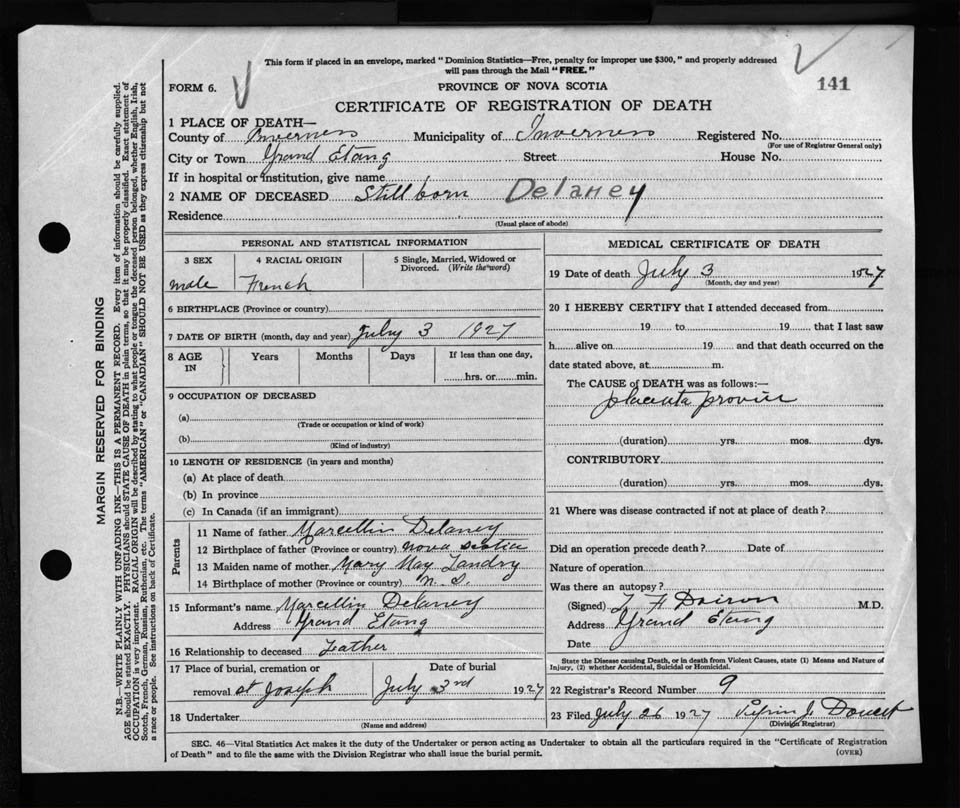 This form if placed in an envelope, marked "Dominion Statistics—Free, penalty for improper use $300," and properly addressed
will pass through the Mail "FREE."
141
FORM 6.
PROVINCE OF NOVA SCOTIA
CERTIFICATE OF REGISTRATION OF DEATH
MARGIN RESERVED FOR BINDING
N.B.—WRITE PLAINLY WITH UNFADING INK—THIS IS A PERMANENT RECORD. Every item of information should be carefully supplied.
AGE should be stated EXACTLY. PHYSICIANS should STATE CAUSE OF DEATH in plain terms, so that it may be properly classified. Exact statement of
OCCUPATION is very important. RACIAL ORIGIN will be described by stating to what people or tongue the deceased person belonged, whether English, Irish,
Scotch, French, German, Russian, Ruthenian, etc. The terms "AMERICAN" or "CANADIAN" SHOULD NOT BE USED as they express citizenship but not
a race or people. See instructions on back of Certificate.
1 PLACE OF DEATH—
County of Inverness Municipality of Inverness Registered No.
(For use of Registrar General only)
City or Town Grand Etang Street House No.
If in hospital or institution, give name
2 NAME OF DECEASED Still born Delaney
Residence
(Usual place of abode)
PERSONAL AND STATISTICAL INFORMATION
3 SEX 4 RACIAL ORIGIN 5 Single, Married, Widowed or
Divorced. (Write the word)
male French
6 BIRTHPLACE (Province or country)
7 DATE OF BIRTH (month, day and year) July 3 1927
8 AGE IN Years Months Days If less than one day,
hrs. or min.
9 OCCUPATION OF DECEASED
(a)
(Trade or occupation or kind of work)
(b)
(Kind of industry)
10 LENGTH OF RESIDENCE (in years and months)
(a) At place of death
(b) In province
(c) In Canada (if an immigrant)
Parents
11 Name of father Marcellin Delaney
12 Birthplace of father (Province or country) Nova Scotia
13 Maiden name of mother Mary May Landry
14 Birthplace of mother (Province or country) N. S.
15 Informant's name Marcellin Delaney
Address Grand Etang
16 Relationship to deceased Father
17 Place of burial, cremation or Date of burial
removal St Joseph July 3rd 1927
18 Undertaker
(Name and address)
MEDICAL CERTIFICATE OF DEATH
19 Date of death July 3 1927
(Month, day and year)
20 I HEREBY CERTIFY that I attended deceased from
19 to 19 that I last saw
h alive on 19 and that death occurred on the
date stated above, at m.
The CAUSE of DEATH was as follows:—
placenta
(duration) yrs. mos. dys.
CONTRIBUTORY
(duration) yrs. mos. dys.
21 Where was disease contracted if not at place of death?
Did an operation precede death? Date of
Nature of operation
Was there an autopsy?
(Signed) M.D.
Address Grand Etang
Date
State the Disease causing Death, or in death from Violent Causes, state (1) Means and Nature of
Injury, (2) whether Accidental, Suicidal or Homicidal.
22 Registrar's Record Number 9
23 Filed July 26 1927 J. Doucet
(Division Registrar)
SEC. 46—Vital Statistics Act makes it the duty of the Undertaker or person acting as Undertaker to obtain all the particulars required in the "Certificate of Registration
of Death" and to file the same with the Division Registrar who shall issue the burial permit.
(OVER)